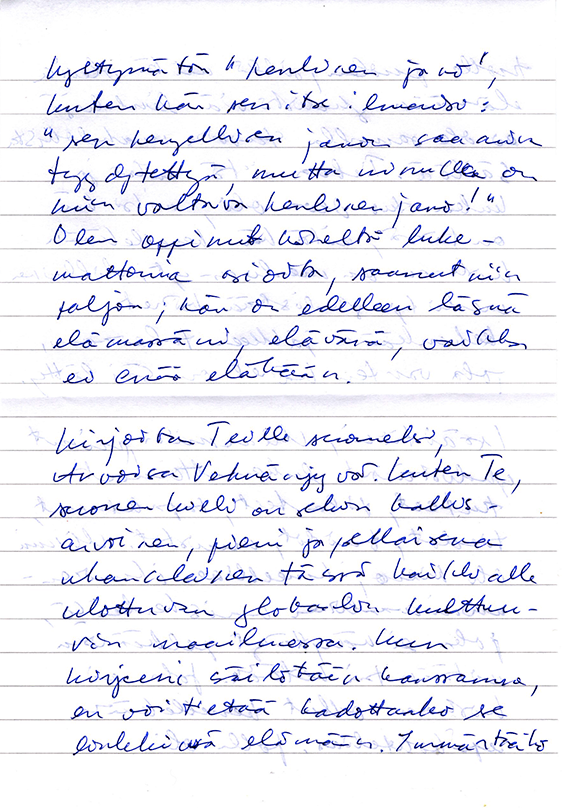 kyltymätön "henkinen jano",
kuten hän sen itse ilmaisi:
"sen hengellisen janon saa aina
tyydytettyä, mutta minulla on
niin valtava henkinen jano!"
Olen oppinut häneltä luke-
mattomia asioita, saanut niin
paljon; hän on edelleen läsnä
elämässäni, elävänä, vaikka
ei enää eläkään.
Kirjoitan Teille suomeksi,
Arvoisa Vehnänjyvä. Kuten Te,
suomen kieli on sekin kallis-
arvoinen, pieni ja sellaisena
uhanalainen tässä kaikkialle
ulottuvan globaalin kulttuu-
rin maailmassa. Kun
kirjeeni säilötään kanssanne,
en voi tietää kadottaako se
elämään. Ymmärtääkö